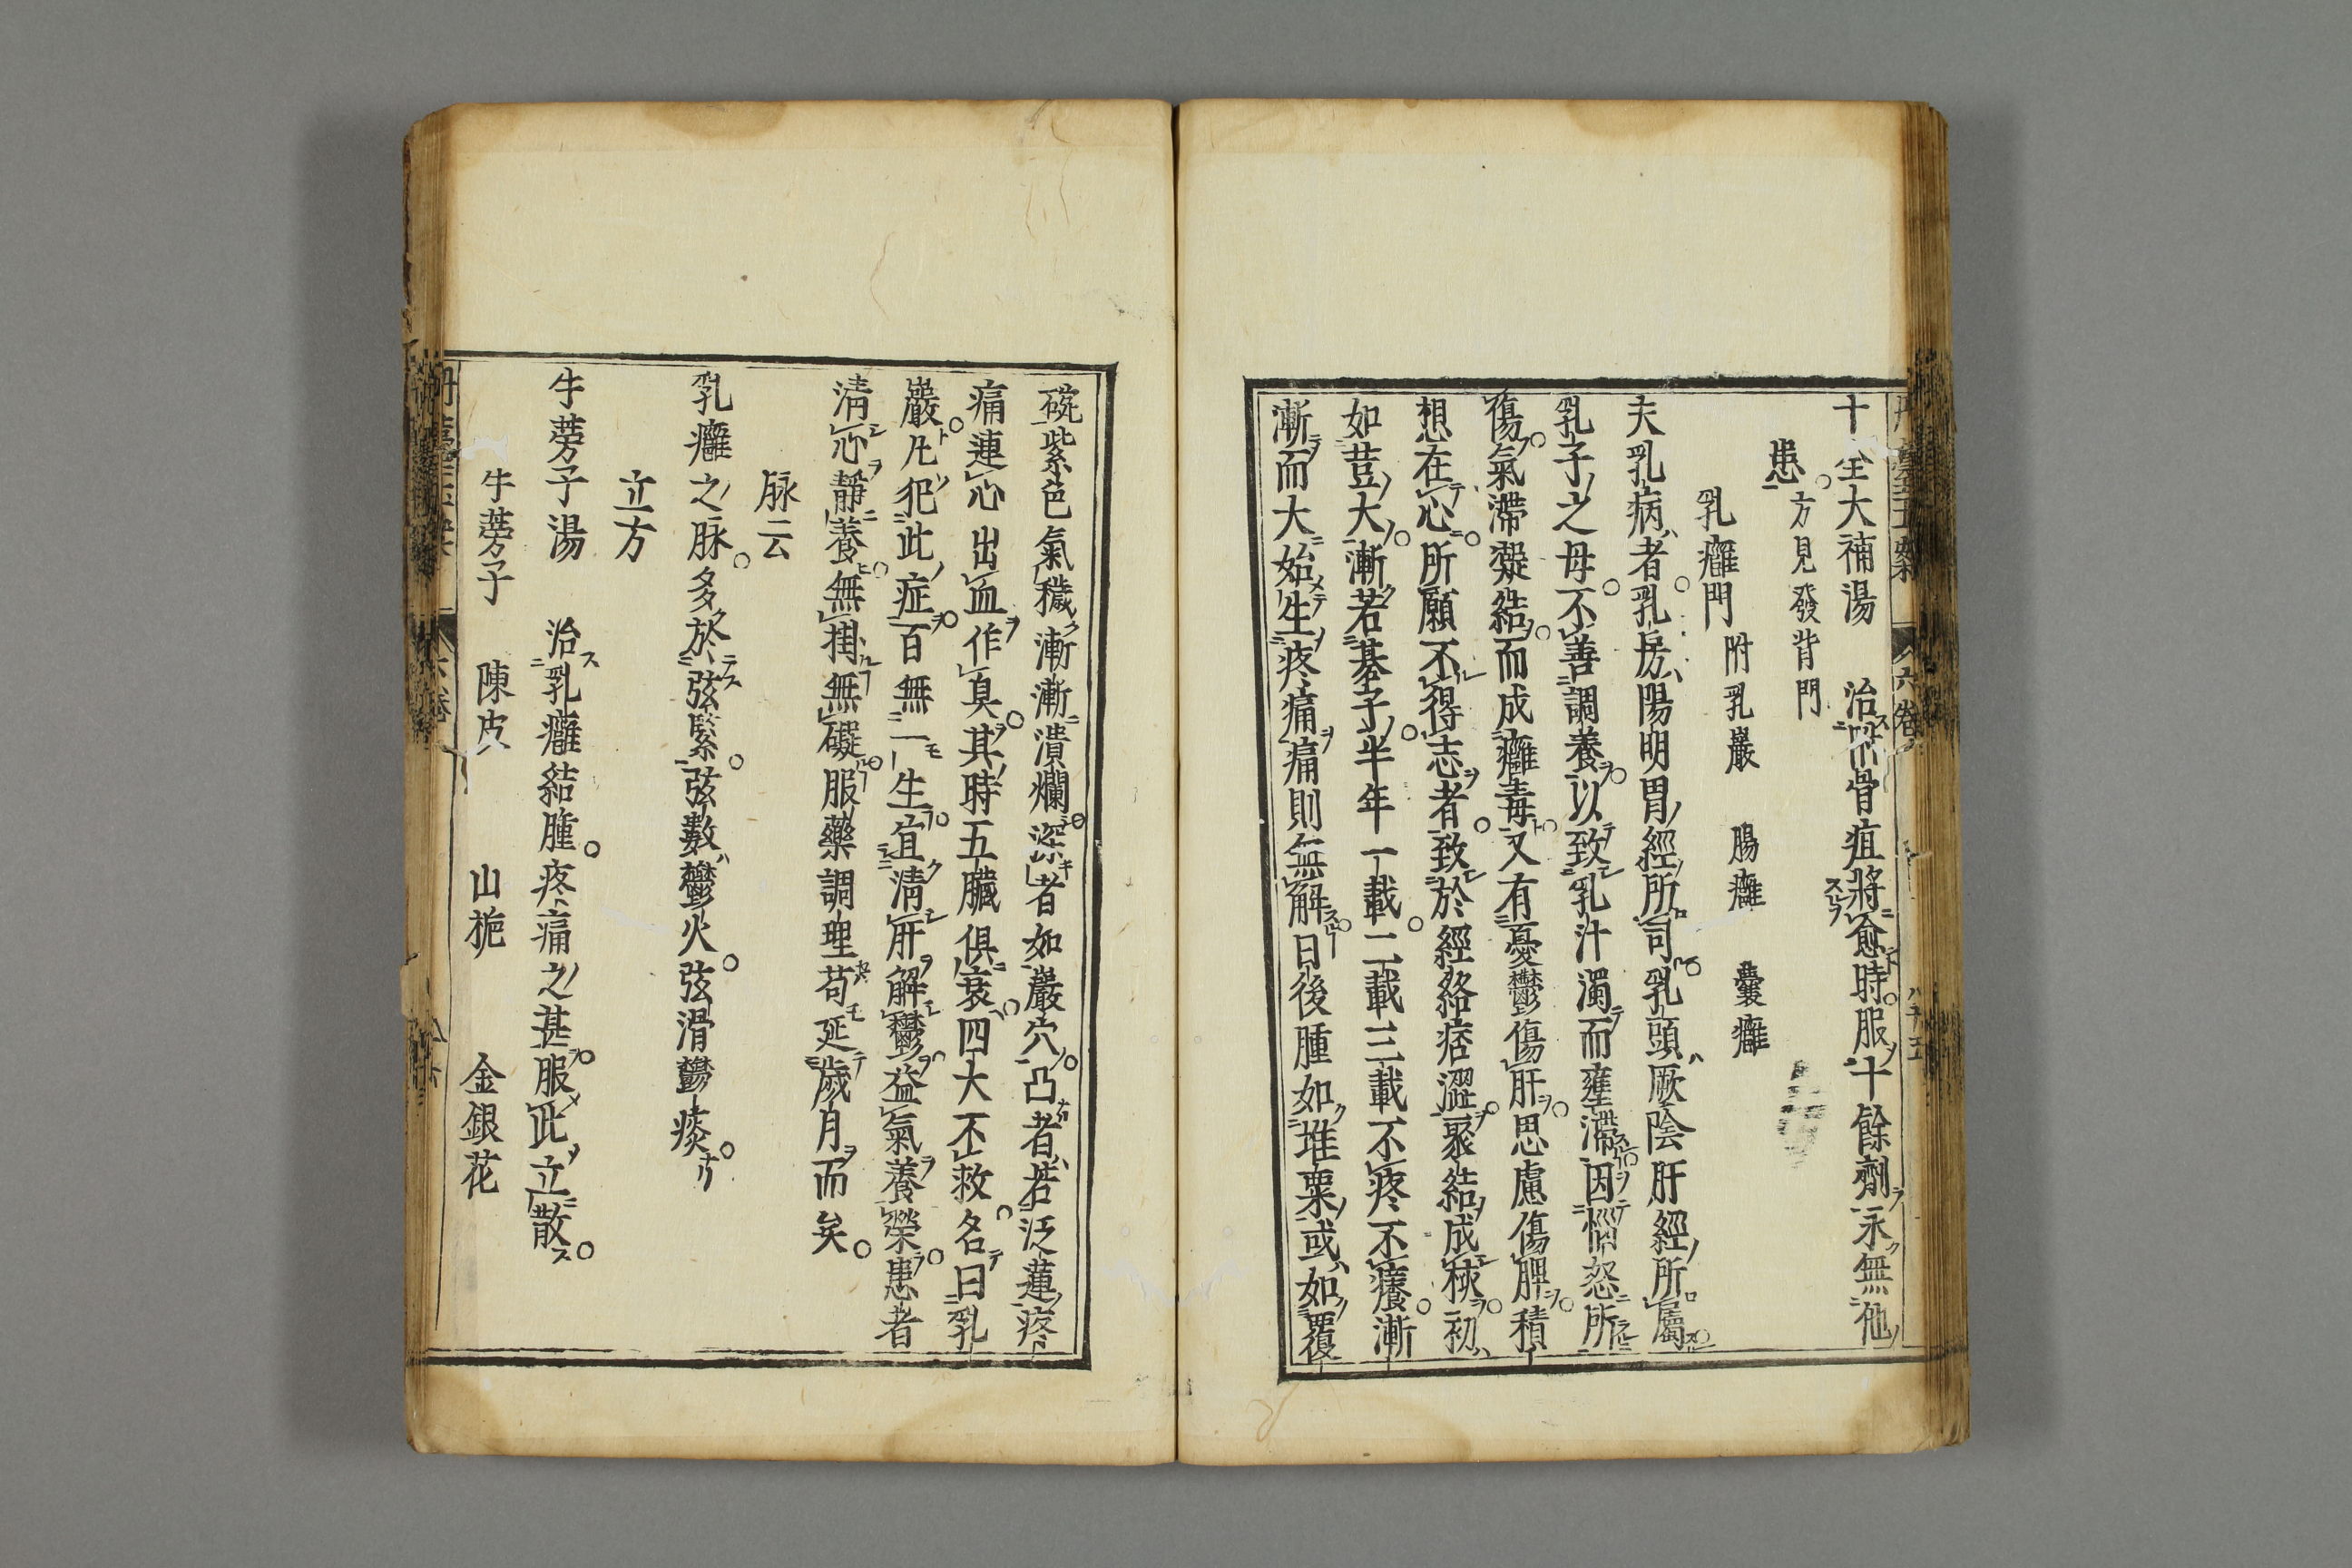 十全大補湯　治附骨疽將愈時服十餘劑永無他
患　方見發背門
乳癰門　附乳巖　腸癰　囊癰
夫乳病者乳房陽明胃經所司乳頭厥陰肝經所屬
乳子之母不善調養以致乳汁濁而壅滯因惱怒所
傷氣滯凝結而成癰毒又有憂鬱傷肝思慮傷脾積
想在心所願不得志者致於經絡痞澀聚結成核初
如荳大漸若碁子半年一載二載三載不疼不癢漸
漸而大始生疼痛痛則無解日後腫如堆粟或如覆
碗紫色氣穢漸漸潰爛深者如巖穴凸者若泛蓮疼
痛連心出血作臭其時五臟俱衰四大不救名曰乳
巖凡犯此症百無一生宜清肝解鬱益氣養榮患者
清心靜養無掛無礙服藥調理苟延歲月而矣
脉云
乳癰之脉多於弦緊弦數鬱火弦滑鬱痰
立方
牛蒡子湯　治乳癰結腫疼痛之甚服此立散
牛蒡子　陳皮　山梔　金銀花
六卷